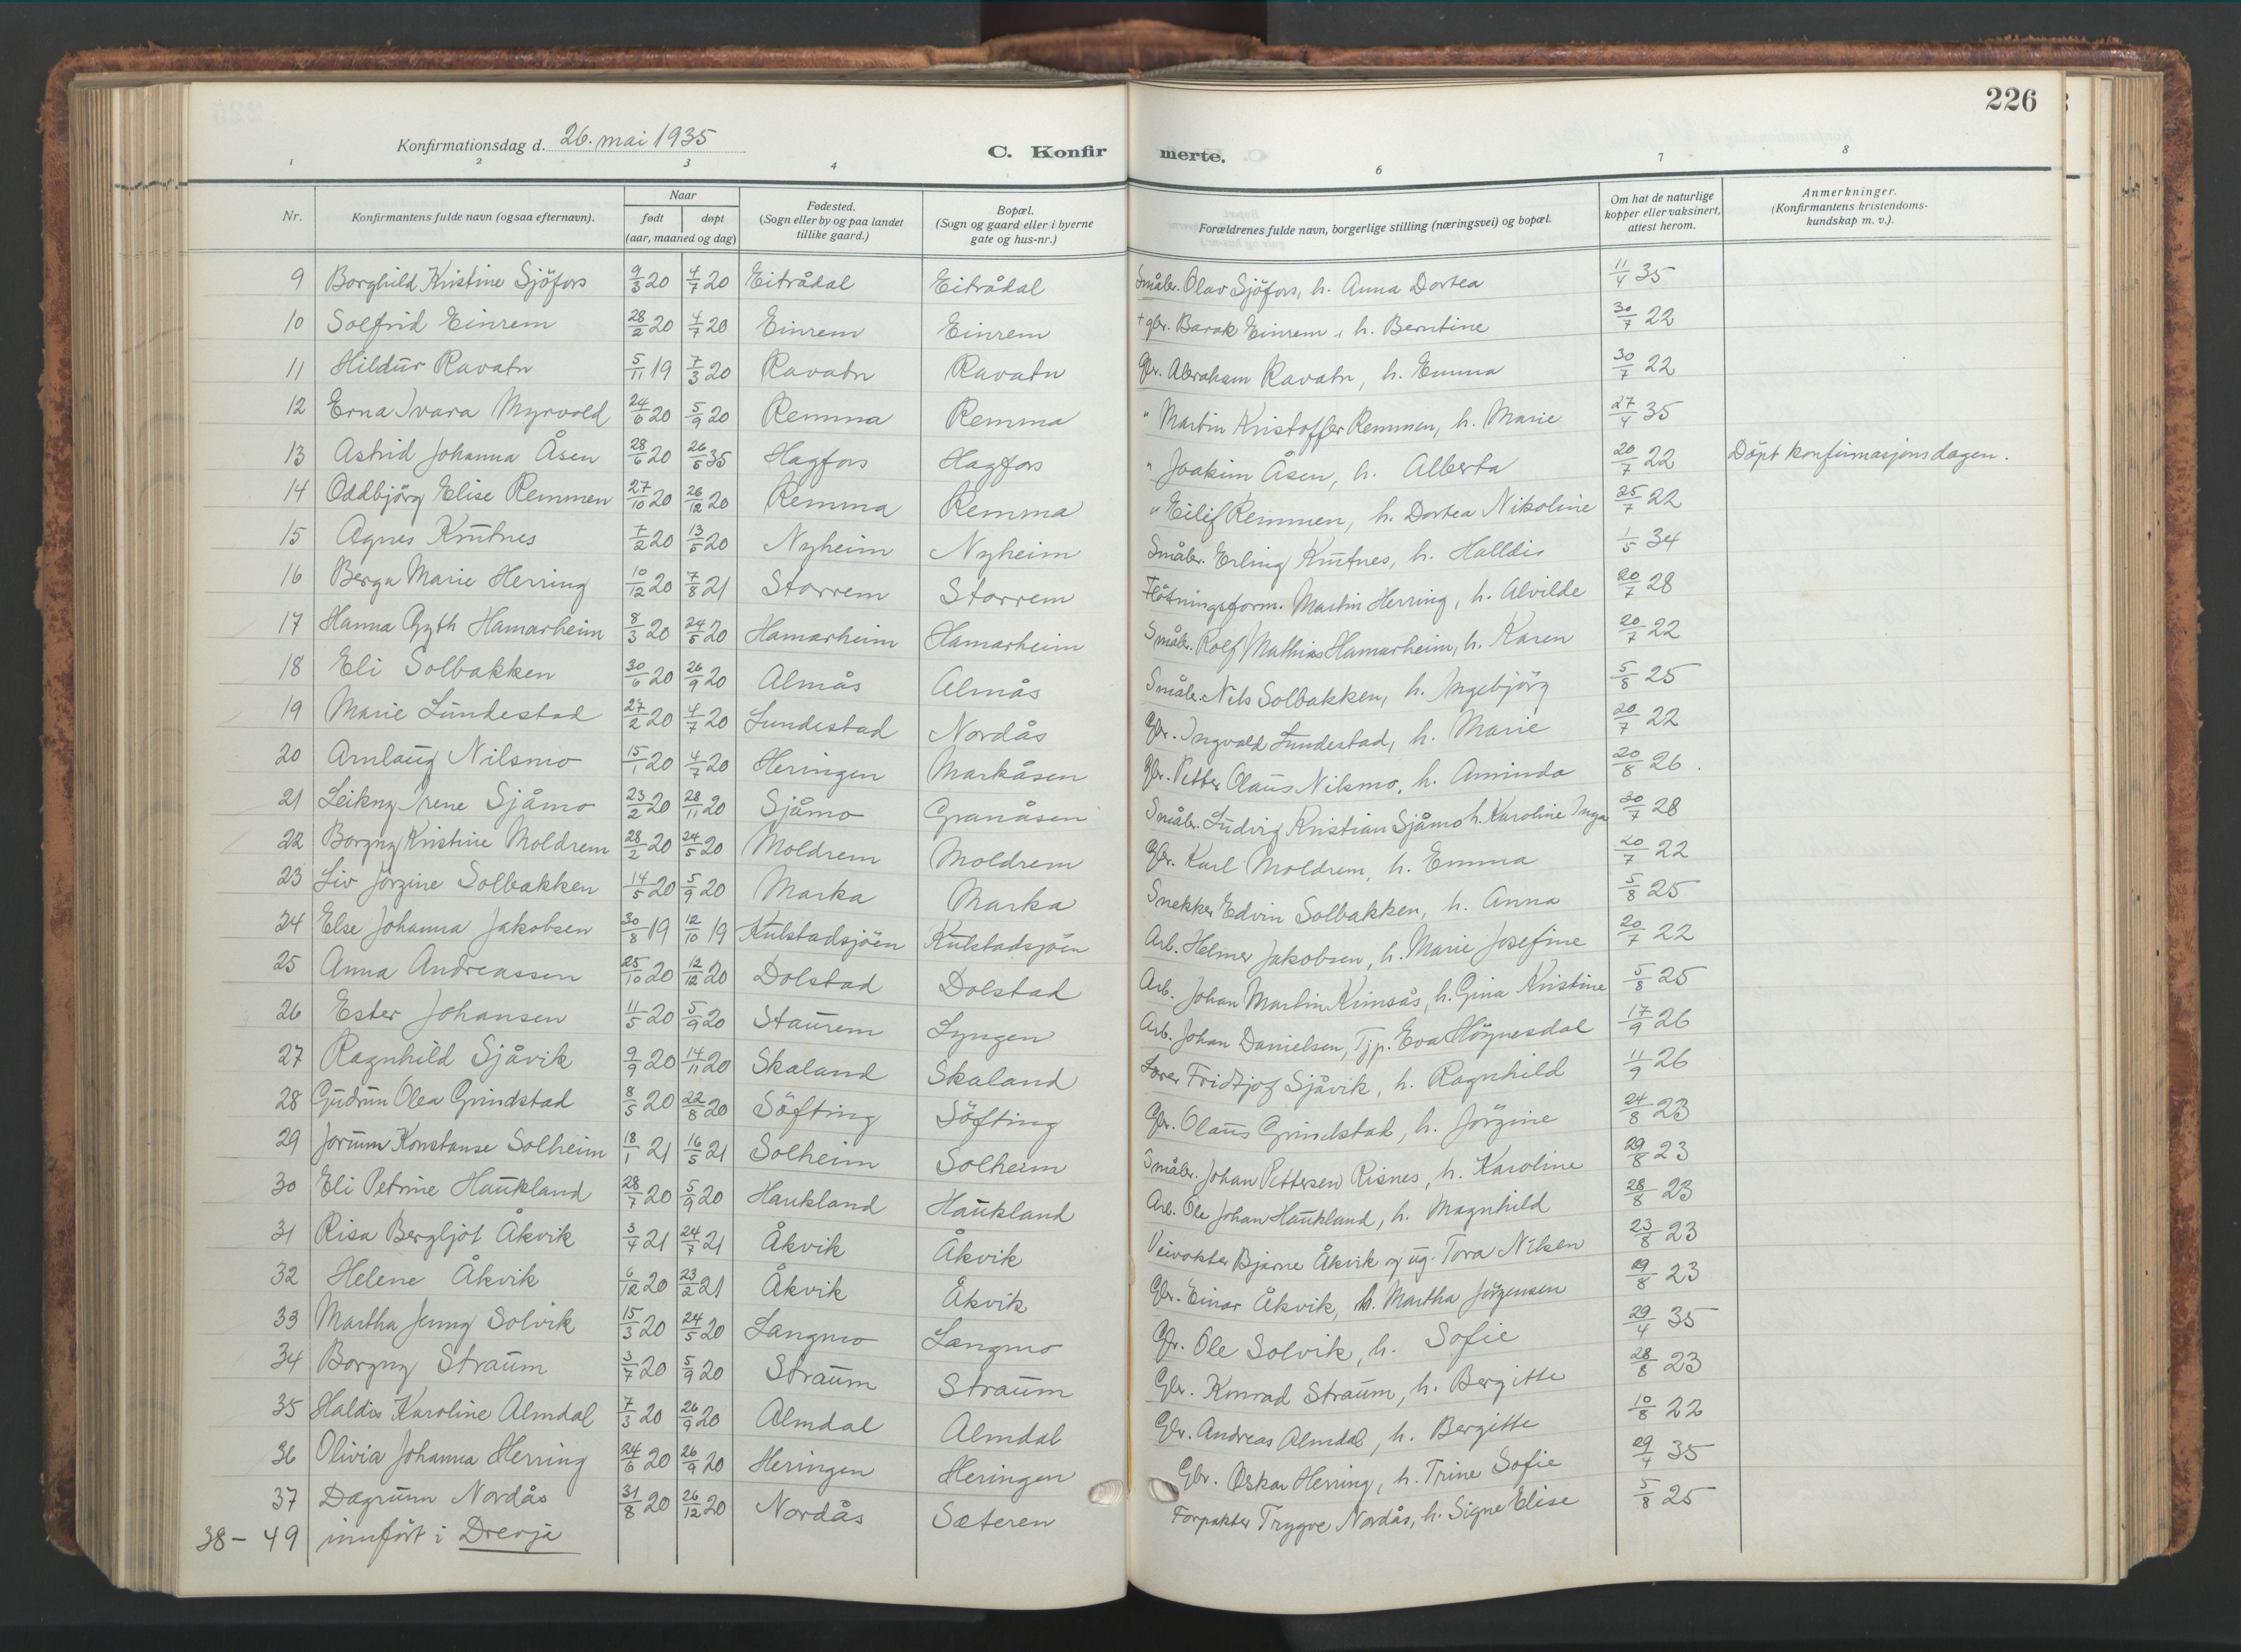 226
Konfirmationsdag d. 26. mai 1935
C. Konfir merte.
1 2 3 4 6 7 8
Nr. Konfirmantens fulde navn (ogsaa efternavn). Naar født døpt (aar, maaned og dag) Fødested. (Sogn eller by og paa landet tillike gaard.) Bopæl. (Sogn og gaard eller i byerne gate og hus-nr.) Forældrenes fulde navn, borgerlige stilling (næringsvei) og bopæl. Om hat de naturlige kopper eller vaksinert, attest herom. Anmerkninger. (Konfirmantens kristendoms-kundskap m. v.).
9 Borghild Kristine Sjöfors 9/3 20 4/7 20 Eitrådal Eitrådal Småbr. Olav Sjöfors, h. Anna Dortea 11/4 35
10 Solfrid Einrem 28/2 20 4/7 20 Einrem Einrem + gbr. Barak Einrem, h. Berntine 30/7 22
11 Hildur Ravatn 5/11 19 7/3 20 Ravatn Ravatn Gbr. Abraham Ravatn, h. Emma 30/7 22
12 Erna Ivara Myrvold 24/6 20 5/9 20 Remma Remma " Martin Kristoffer Remmen, h. Marie 27/4 35
13 Astrid Johanna Åsen 28/6 20 26/5 35 Hagfors Hagfors " Joakim Åsen, h. Alberta 20/7 22 Döpt konfirmasjonsdagen.
14 Oddbjörg Elise Remmen 27/10 20 26/12 20 Remma Remma " Eilif Remmen, h. Dortea Nikoline 25/7 22
15 Agnes Knutnes 7/2 20 13/5 20 Nyheim Nyheim Småbr. Erling Knutnes, h. Halldis 1/5 34
16 Berga Marie Herring 10/12 20 7/8 21 Storrem Storrem Flötningsform. Martin Herring, h. Alvilde 20/7 28
17 Hanna Gyth Hamarheim 8/3 20 24/5 20 Hamarheim Hamarheim Småbr. Rolf Mathias Hamarheim, h. Karen 20/7 22
18 Eli Solbakken 30/6 20 26/9 20 Almås Almås Småbr. Nils Solbakken, h. Ingebjörg 5/8 25
19 Marie Lundestad 27/2 20 4/7 20 Lundestad Nordås Gbr. Ingvald Lundestad, h. Marie 20/7 22
20 Arnlaug Nilsmo 15/1 20 4/7 20 Heringen Markåsen Gbr. Petter Olaus Nilsmo, h. Aminda 20/8 26.
21 Leikny Irene Sjåmo 23/2 20 28/11 20 Sjåmo Granåsen Småbr. Ludvig Kristian Sjåmo h. Karoline Inga 30/7 28
22 Borgny Kristine Moldrem 28/2 20 24/5 20 Moldrem Moldrem Gbr. Karl Moldrem, h. Emma 20/7 22
23 Liv Jörgine Solbakken 14/5 20 5/9 20 Marka Marka Snekker Edvin Solbakken, h. Anna 5/8 25
24 Else Johanna Jakobsen 30/8 19 12/10 19 Kulstadsjöen Kulstadsjöen Arb. Helmer Jakobsen, h. Marie Josefine 20/7 22
25 Anna Andreassen 25/10 20 12/12 20 Dolstad Dolstad Arb. Johan Martin Kimsås, h. Gina Kristine 5/8 25
26 Ester Johansen 11/5 20 5/9 20 Staurem Lyngen Arb. Johan Danielsen, Tjp. Eva Höynesdal 17/9 26
27 Ragnhild Sjåvik 9/9 20 14/11 20 Skaland Skaland Lærer Fridtjof Sjåvik, h. Ragnhild 11/9 26
28 Gudrun Olea Grindstad 8/5 20 22/8 20 Söfting Söfting Gbr. Olaus Grindstad, h. Jörgine 24/8 23
29 Jorunn Konstanse Solheim 18/1 21 16/5 21 Solheim Solheim Småbr. Johan Pettersen Risnes, h. Karoline 29/8 23
30 Eli Petrine Haukland 28/7 20 5/9 20 Haukland Haukland Arb. Ole Johan Haukland, h. Magnhild 28/8 23
31 Risa Bergljot Åkvik 3/4 21 24/7 21 Åkvik Åkvik Veivokter Bjarne Åkvik og ug. Tora Nilsen 23/8 23
32 Helene Åkvik 6/12 20 23/2 21 Åkvik Åkvik Gbr. Einar Åkvik, h. Martha Jörgensen 29/8 23
33 Martha Jenny Solvik 15/3 20 24/5 20 Langmo Langmo Gbr. Ole Solvik, h. Sofie 29/4 35
34 Borgny Straum 3/7 20 5/9 20 Straum Straum Gbr. Konrad Straum, h. Bergitte 28/8 23
35 Haldis Karoline Almdal 7/3 20 26/9 20 Almdal Almdal Gbr. Andreas Almdal, h. Bergitte 10/8 22
36 Olivia Johanna Herring 24/6 20 26/9 20 Heringen Heringen Gbr. Oskar Herring, h. Trine Sofie 29/4 35
37 Dagrunn Nordås 31/8 20 26/12 20 Nordås Sæteren Forpakter Trygve Nordås, h. Signe Elise 5/8 25
38 - 49 innfört i Drevja